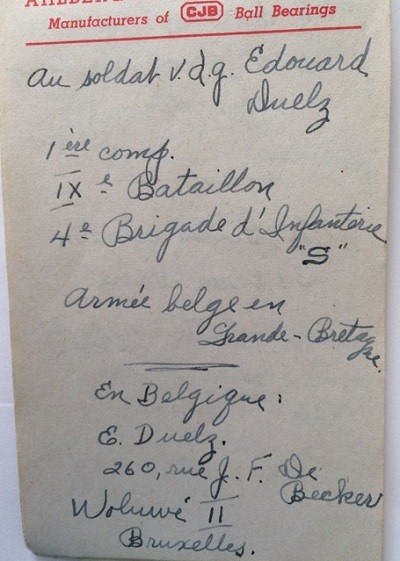 Manufacturers of CJB Ball Bearings
Au soldat v.d.g. Edouard
Duelz
1ère comp.
IXe Bataillon
4e Brigade d'Infanterie
"S"
Armée belge en
Grande-Bretagne.
En Belgique:
E. Duelz.
260, rue J. F. De
Becker
Woluwé II
Bruxelles.